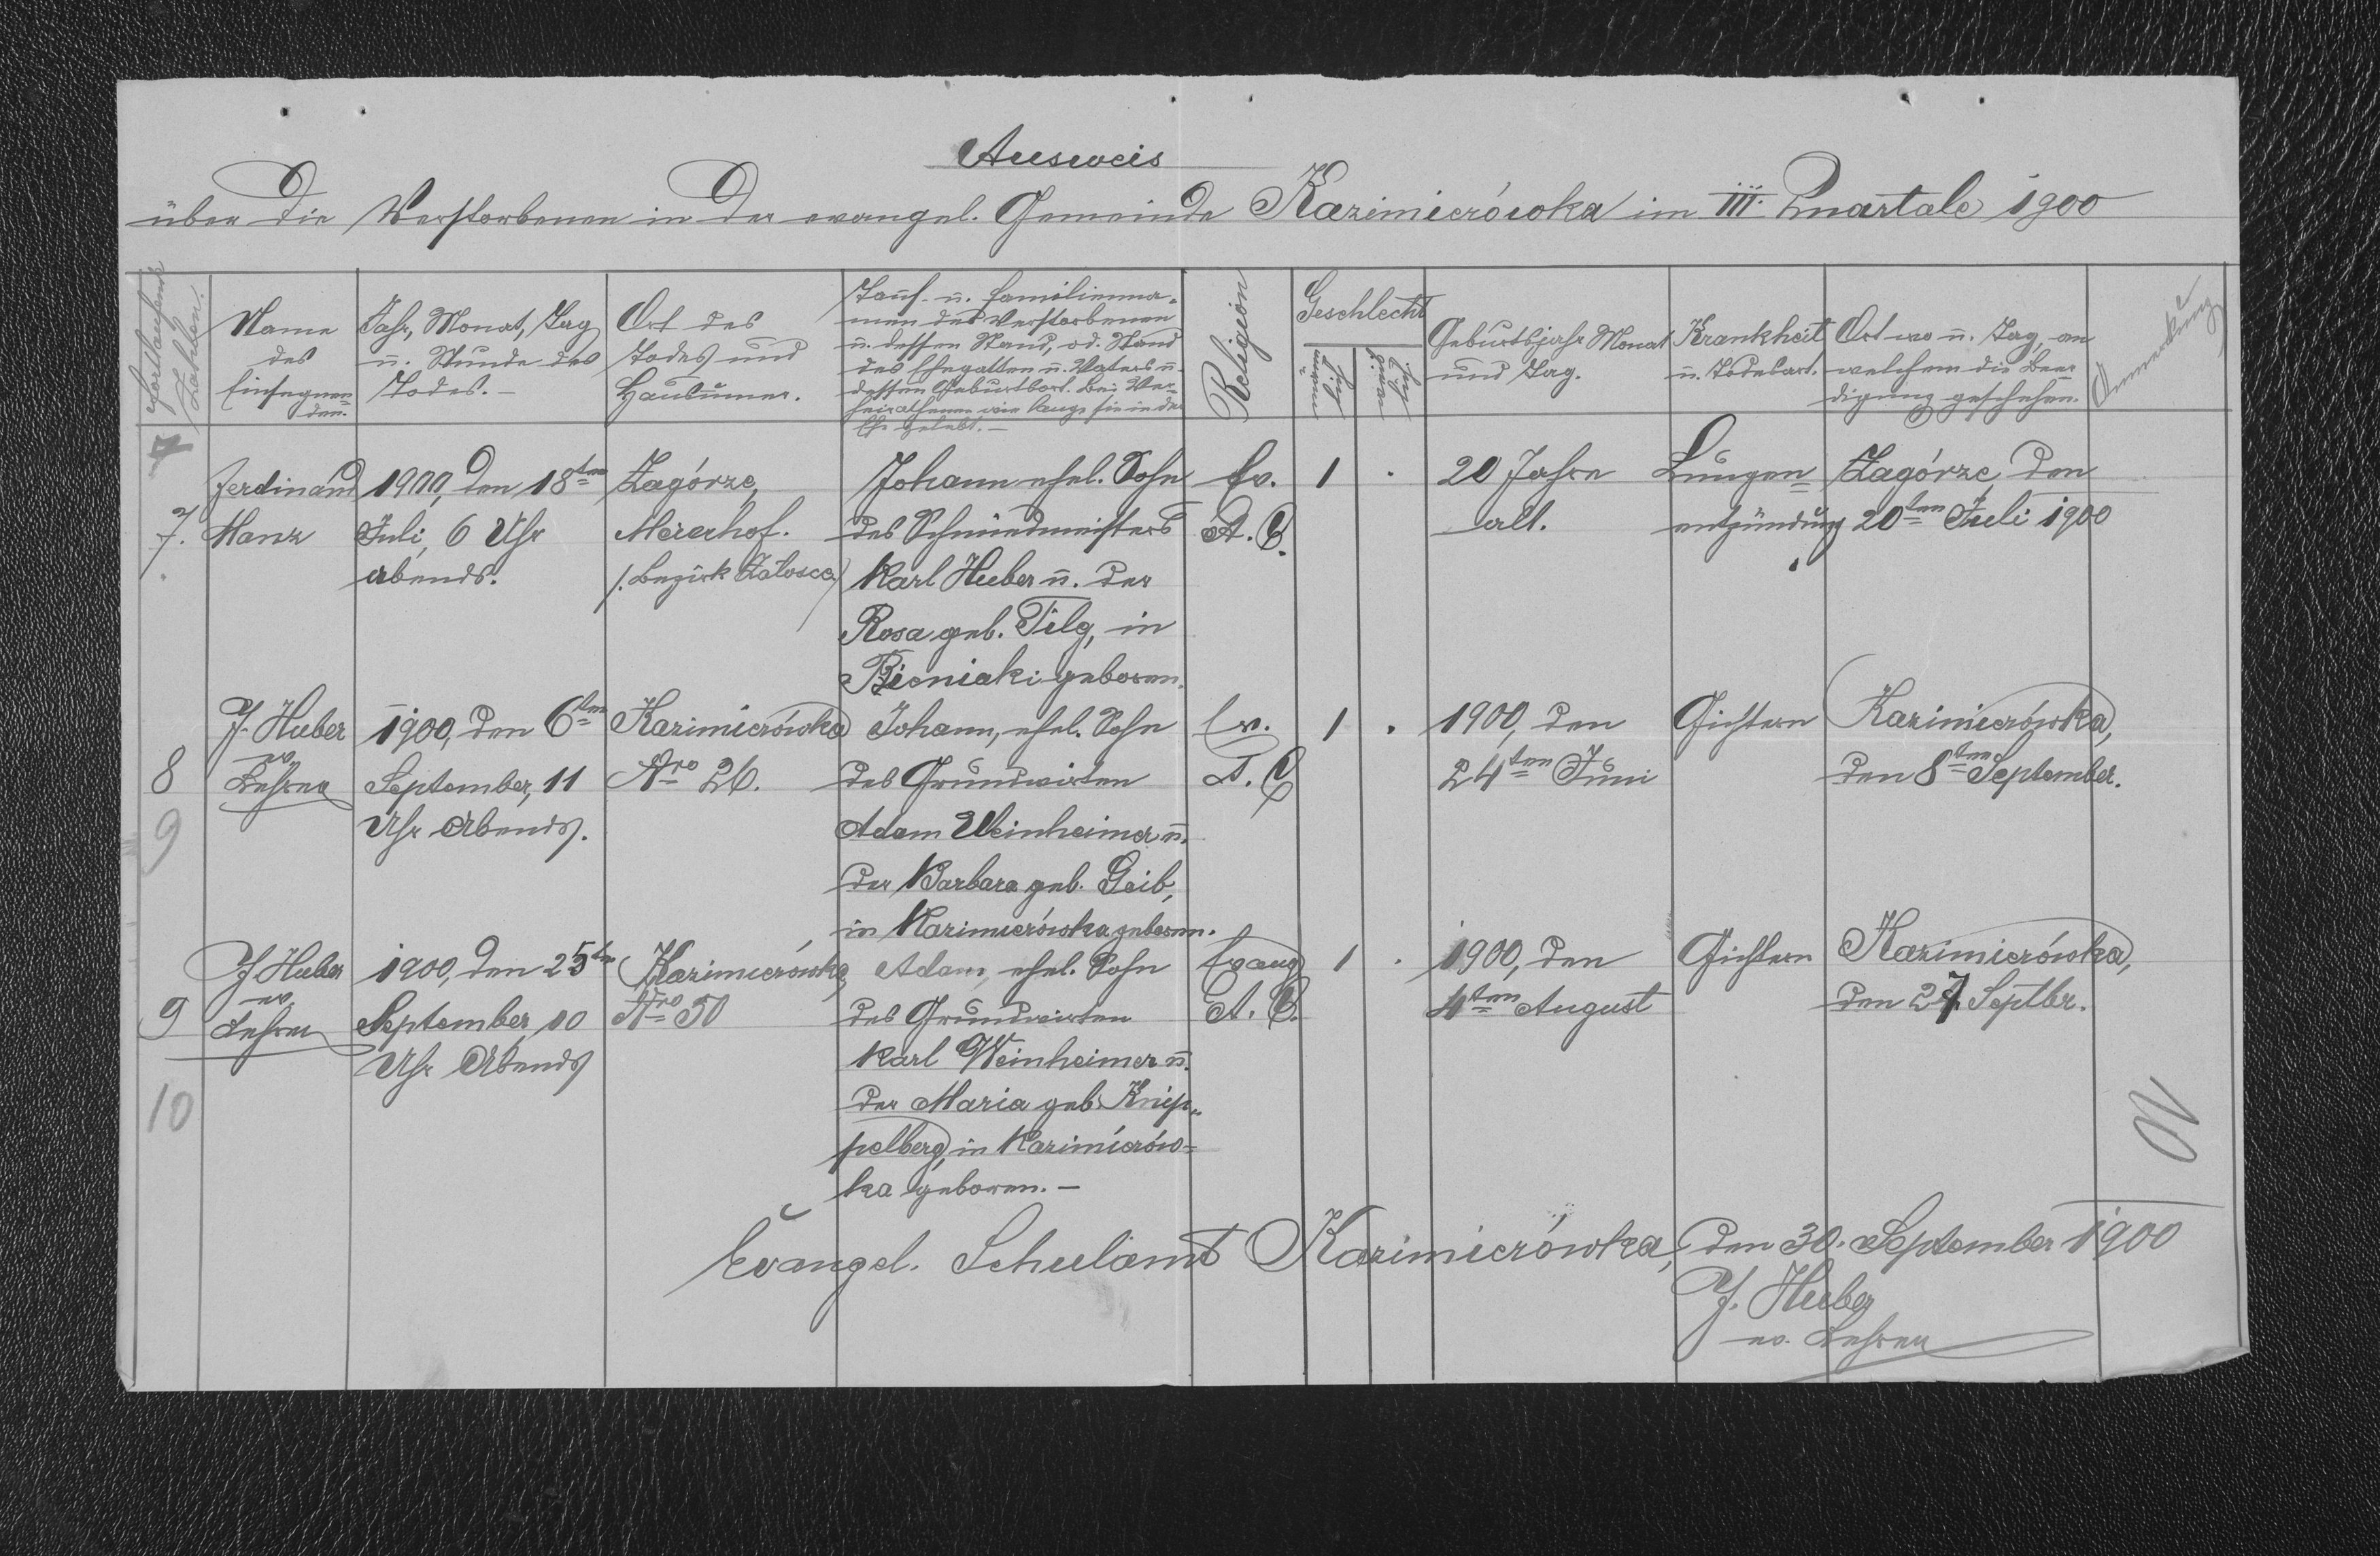 Ausweis
über die Verstorbenen in der evangel. Gemeinde Kazimierówka im III. Quartale 1900
Fortlaufende Zahlen.
Name
des
Einsegnen=
den.
Jahr, Monat, Tag
u. Stunde des
Todes. –
Ort des
Todes und
Hausnumer.
Tauf- u. Familienna-
men des Verstorbenen
u. dessen Stand, od. Stand
des Ehegatten u. Vaters u.
dessen Geburtsort. Bei Ver-
heirathenen wie lange sie in der
Ehe gelebt. –
Religion
Geschlecht
männ
lich
weib
lich
Geburtsjahr Monat
und Tag.
Krankheit
u. Todesart.
Ort wo u. Tag, an
welchem die Beer
digung geschehen.
Anmerkung
7.
Ferdinand
Manz
1900, den 18ten
Juli, 6 Uhr
abends.
Zagórze,
Meierhof.
/. Bezirk Załosce)
Johann ehel. Sohn
des Schmiedmeisters
Karl Huber u. der
Rosa geb. Tilg, in
Bieniaki geboren.
Ev.
A. C.
1 .
20 Jahre
alt.
Lungen=
entzündung
Zagórze, den
20ten Juli 1900
8
9
J. Huber
ev.
Lehrer
1900, den 6ten
September, 11
Uhr Abends.
Kazimierówka
Nro 26.
Johann, ehel. Sohn
des Grundwirten
Adam Weinheimer u.
der Barbara geb. Geib,
in Kazimierówka geboren.
Ev.
A. C
1 .
1900, den
24ten Juni
Gichtern
Kazimierówka,
den 8ten September.
9
10
J. Huber
ev.
Lehrer
1900, den 25ten
September, 10
Uhr Abends
Kazimierówka
Nro 50
Adam, ehel. Sohn
des Grundwirten
Karl Weinheimer u.
der Maria geb. Knip-
pelberg, in Kazimierów=
ka geboren. –
Evang
A. C.
1 .
1900, den
4ten August
Gichtern
Kazimierówka,
den 27. Septbr.
Evangel. Schulamt Kazimierówka, den 30. September 1900
J. Huber
ev. Lehrer